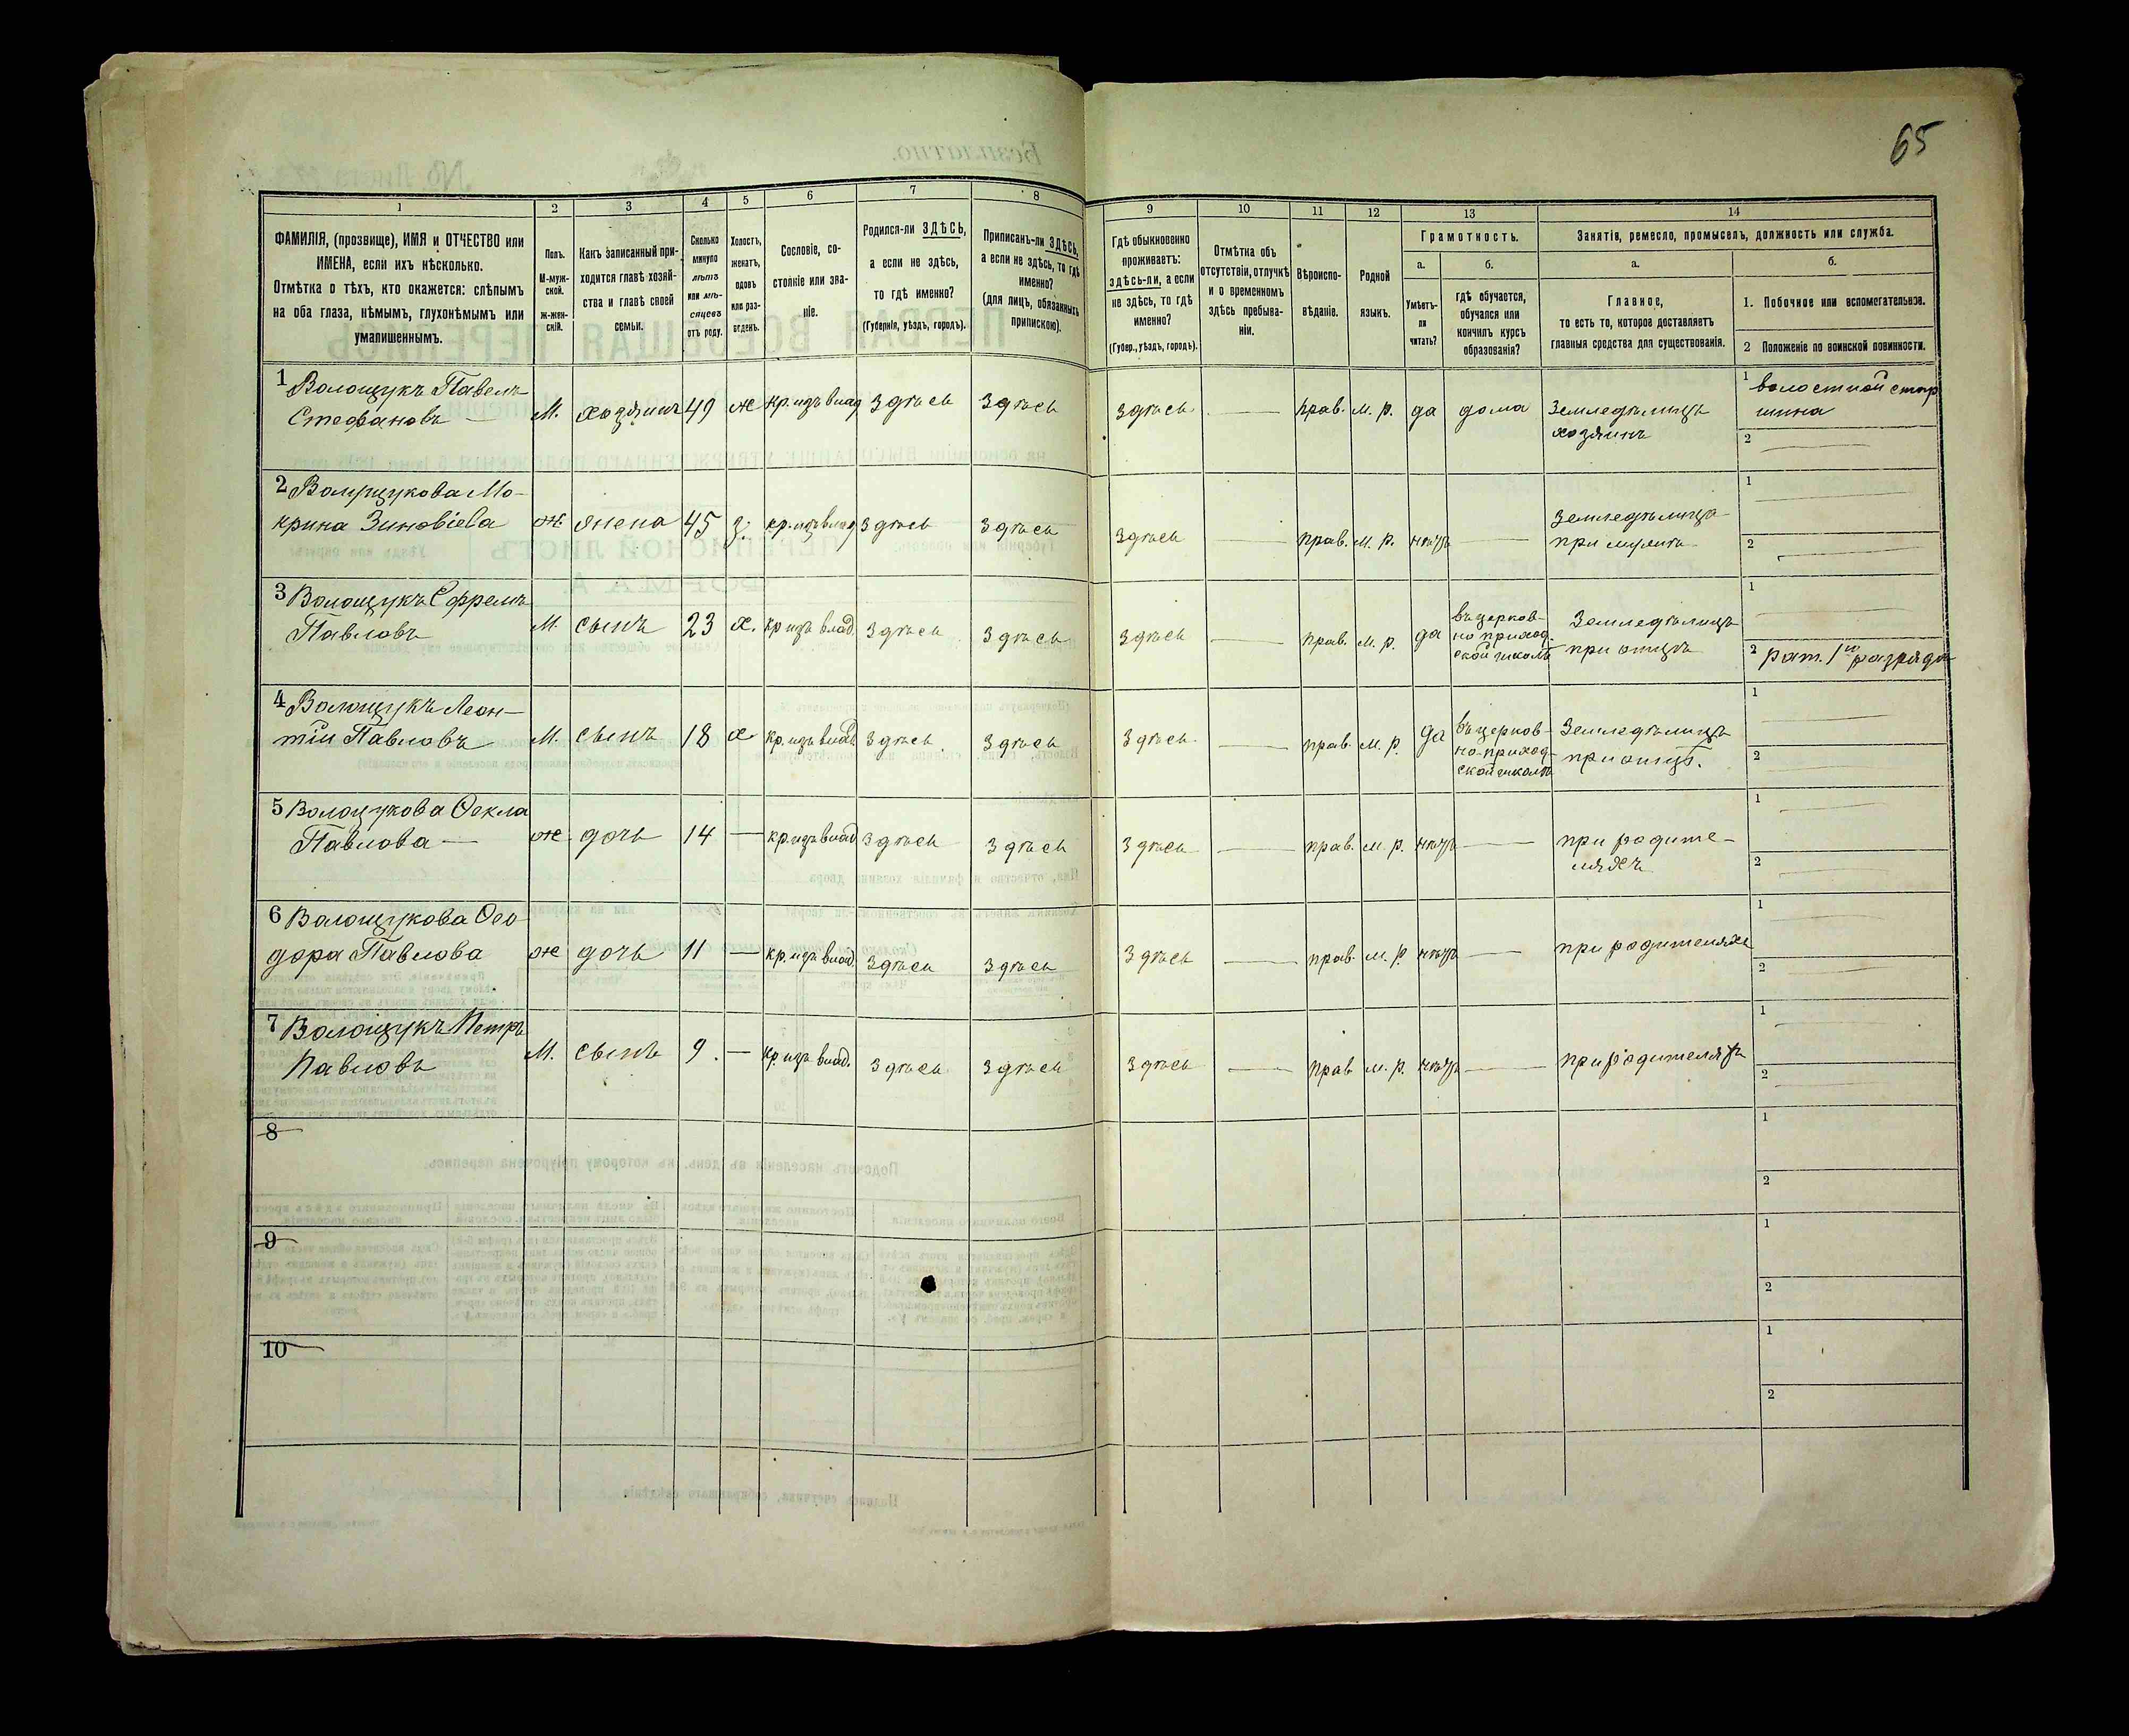 65
1 2 3 4 5 6 7 8 9 10 11 12 13 14
ФАМИЛІЯ, (прозвище), ИМЯ и ОТЧЕСТВО или
ИМЕНА, если ихъ нѣсколько.
Отмѣтка о тѣхъ, кто окажется: слѣпымъ
на оба глаза, нѣмымъ, глухонѣмымъ или
умалишеннымъ.
Полъ.
М-муж-
ской.
ж-жен-
скій.
Какъ записанный при-
ходится главѣ хозяй-
ства и главѣ своей
семьи.
Сколько
минуло
лѣтъ
или мѣ-
сяцевъ
отъ роду.
Холостъ,
женатъ,
вдовъ
или раз-
веденъ.
Сословіе, со-
стояніе или зва-
ніе.
Родился-ли ЗДѢСЬ,
а если не здѣсь,
то гдѣ именно?
(Губернія, уѣздъ, городъ).
Приписанъ-ли ЗДѢСЬ,
а если не здѣсь, то гдѣ
именно?
(для лицъ, обязанныхъ
припискою).
Гдѣ обыкновенно
проживаетъ:
здѣсь-ли, а если
не здѣсь, то гдѣ
именно?
(Губер., уѣздъ, городъ).
Отмѣтка объ
отсутствіи, отлучкѣ
и о временномъ
здѣсь пребыва-
ніи.
Вѣроиспо-
вѣданіе.
Родной
языкъ.
Грамотность.
а.
Умѣетъ-
ли
читать?
б.
гдѣ обучается,
обучался или
кончилъ курсъ
образованія?
Занятія, ремесло, промыселъ, должность или служба.
а.
Главное,
то есть то, которое доставляетъ
главныя средства для существованія.
б.
1. Побочное или вспомогательное.
2 Положеніе по воинской повинности.
1 Волощукъ Павелъ
Стефановъ —
М. хозяинъ 49 ж кр. изъ влад здѣсь здѣсь здѣсь — прав. м. р. да дома
Земледѣлецъ
хозяинъ
1 волостной стар
шина
2
2 Волощукова Мо-
крина Зиновіева
ж. жена 45 з. кр. изъ влад здѣсь здѣсь здѣсь — прав. м. р. нѣтъ —
Земледѣлица
при мужѣ
1 —
2 —
3 Волощукъ Ефремъ
Павловъ
М. сынъ 23 х. кр изъ влад. здѣсь здѣсь здѣсь — прав. м. р. да
въ церков-
но приход.
ской школѣ
Земледѣлецъ
при отцѣ
1 —
2 рат. 1го разряда
4 Волощукъ Леон-
тій Павловъ
М. сынъ 18 х кр. изъ влад. здѣсь здѣсь здѣсь — прав. м. р. да
въ церков-
но-приход-
ской школѣ
Земледѣлецъ
при отцѣ.
1 —
2 —
5 Волощукова Ѳекла
Павлова —
ж. дочь 14 — кр. изъ влад здѣсь здѣсь здѣсь — прав. м. р. нѣтъ —
при родите-
ляхъ
1 —
2 —
6 Волощукова Ѳео
дора Павлова
ж дочь 11 — кр. изъ влад. здѣсь здѣсь здѣсь — прав. м. р. нѣтъ — при родителяхъ
1 —
2 —
7 Волощукъ Петръ
Павловъ
М. сынъ 9. — кр. изъ влад. здѣсь здѣсь здѣсь — прав. м. р. нѣтъ — при родителяхъ
1 —
2 —
8
1
2
9
1
2
10
1
2